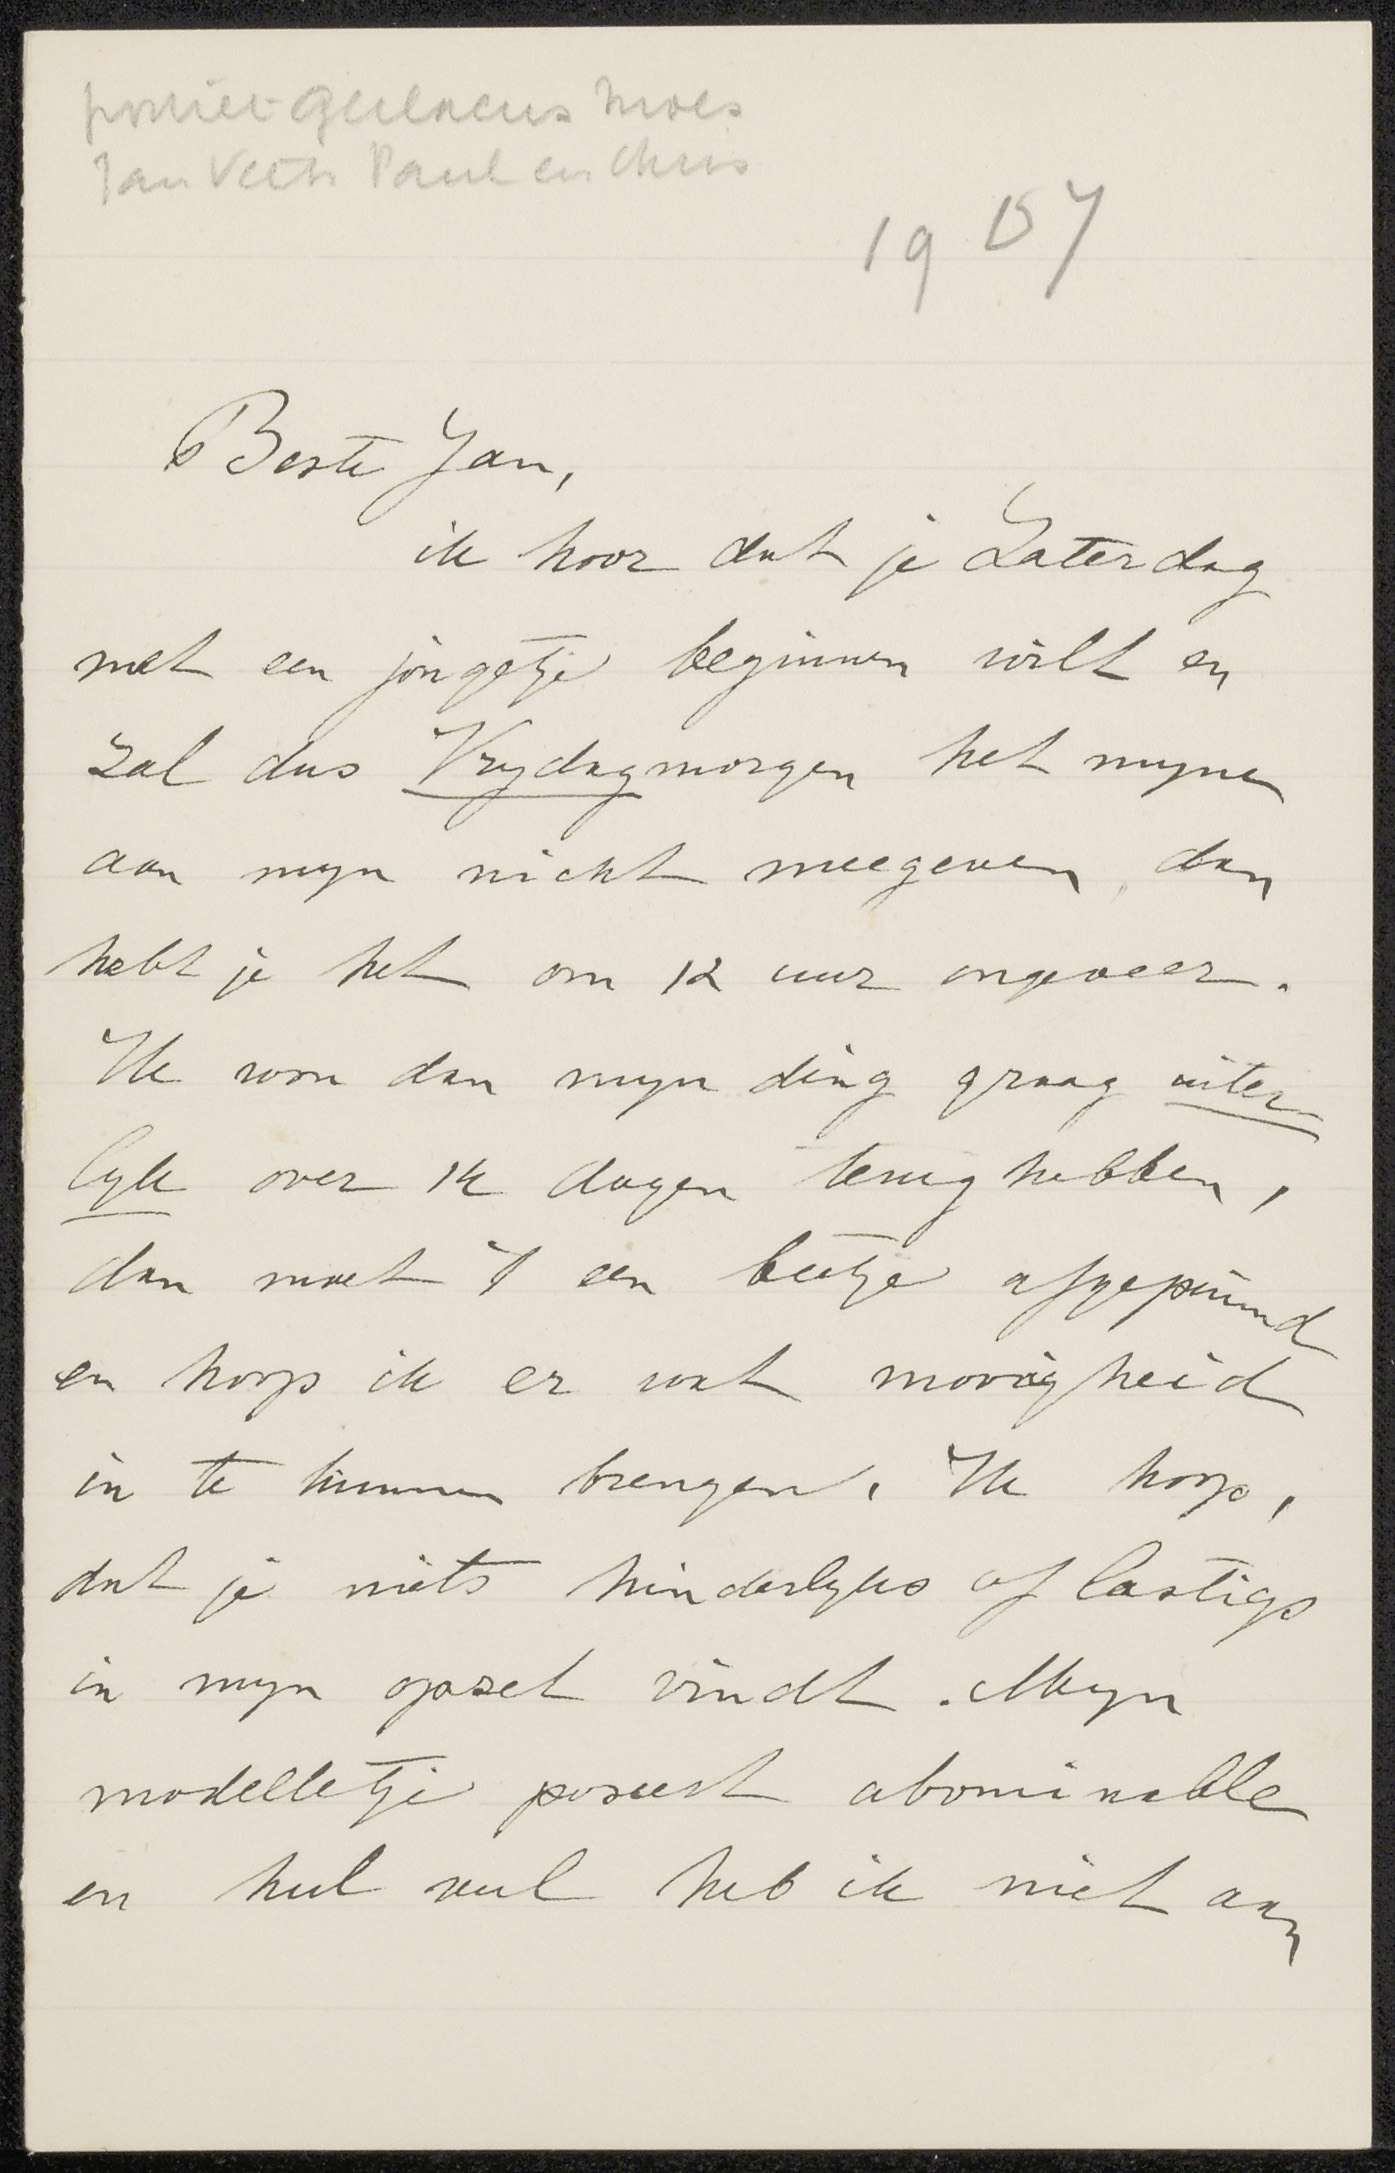 portret Geelneus Moes
Jan Veth Paul en Chris
1907
Beste Jan,
ik hoor dat je Zaterdag
met een jongetje beginnen wilt en
zal dus Vrydagmorgen het myne
aan myn nicht meegeven, dan
hebt je het om 12 uur ongeveer.
Ik wou dan myn ding graag uiter
lyk over 14 dagen terug hebben,
dan moet 't een beetje afgepuimd
en hoop ik er wat mooiigheid
in te kunnen brengen. Ik hoop,
dat je niets hinderlyks of lastigs
in myn opzet vindt. Myn
modelletje poseert abominable
en heel veel heb ik niet aan